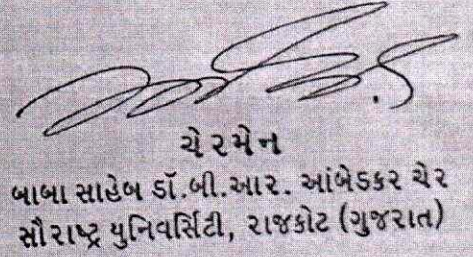 ચેરમેન
બાબા સાહેબ ડૉ.બી.આર. આંબેડકર ચેર
સૌરાષ્ટ્ર યુનિવર્સિટી, રાજકોટ (ગુજરાત)